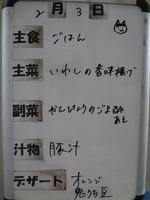 2月3日
主食 ごはん
主菜 いわしの香味揚げ
副菜 かんぴょうのごま酢
あえ
汁物 豚汁
デザート オレンジ
鬼うち豆